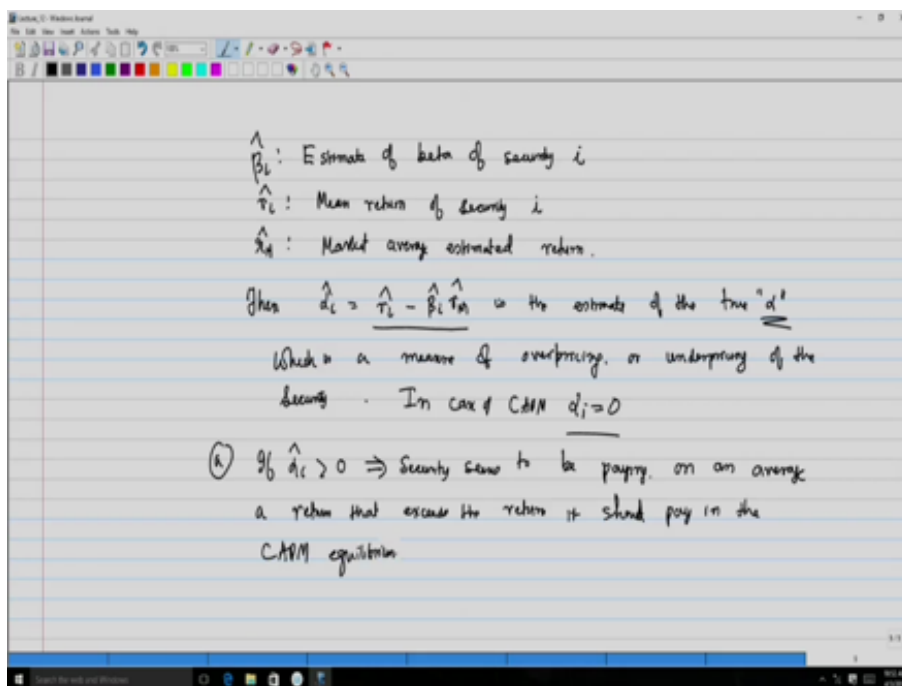 Lecture_12 - Windows Journal
File Edit View Insert Actions Tools Help
B I
β̂ᵢ : Estimate of beta of security i
r̂ᵢ : Mean return of security i
r̂_M : Market average estimated return.
Then α̂ᵢ = r̂ᵢ - β̂ᵢ r̂_M is the estimate of the true "α"
Which is a measure of overpricing or underpricing of the
Security . In case of CAPM αᵢ = 0
(a) If α̂ᵢ > 0 ⇒ Security seems to be paying on an average
a return that exceeds the return it should pay in the
CAPM equilibrium
Search the web and Windows